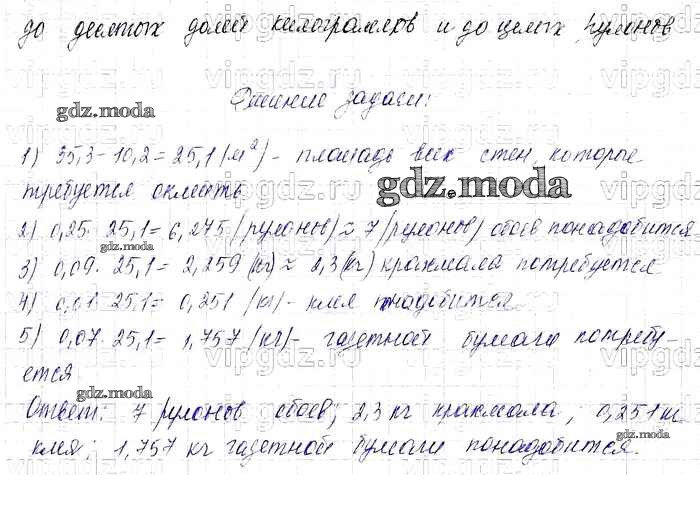 до десятых долей килограммов и до целых рулонов
Решение задачи:
gdz.moda
1) 35,3-10,2=25,1 (м²) - площадь всех стен, которые
требуется оклеить
gdz.moda
2) 0,25·25,1=6,275 (рулонов) ≈ 7 (рулонов) обоев понадобится
gdz.moda
3) 0,09·25,1=2,259 (кг) ≈ 2,3 (кг) крахмала потребуется
4) 0,01·25,1=0,251 (кг) - клея понадобится
5) 0,07·25,1=1,757 (кг) - газетной бумаги потребу-
ется
gdz.moda
Ответ: 7 рулонов обоев; 2,3 кг крахмала; 0,251 кг
клея; 1,757 кг газетной бумаги понадобится.
gdz.moda